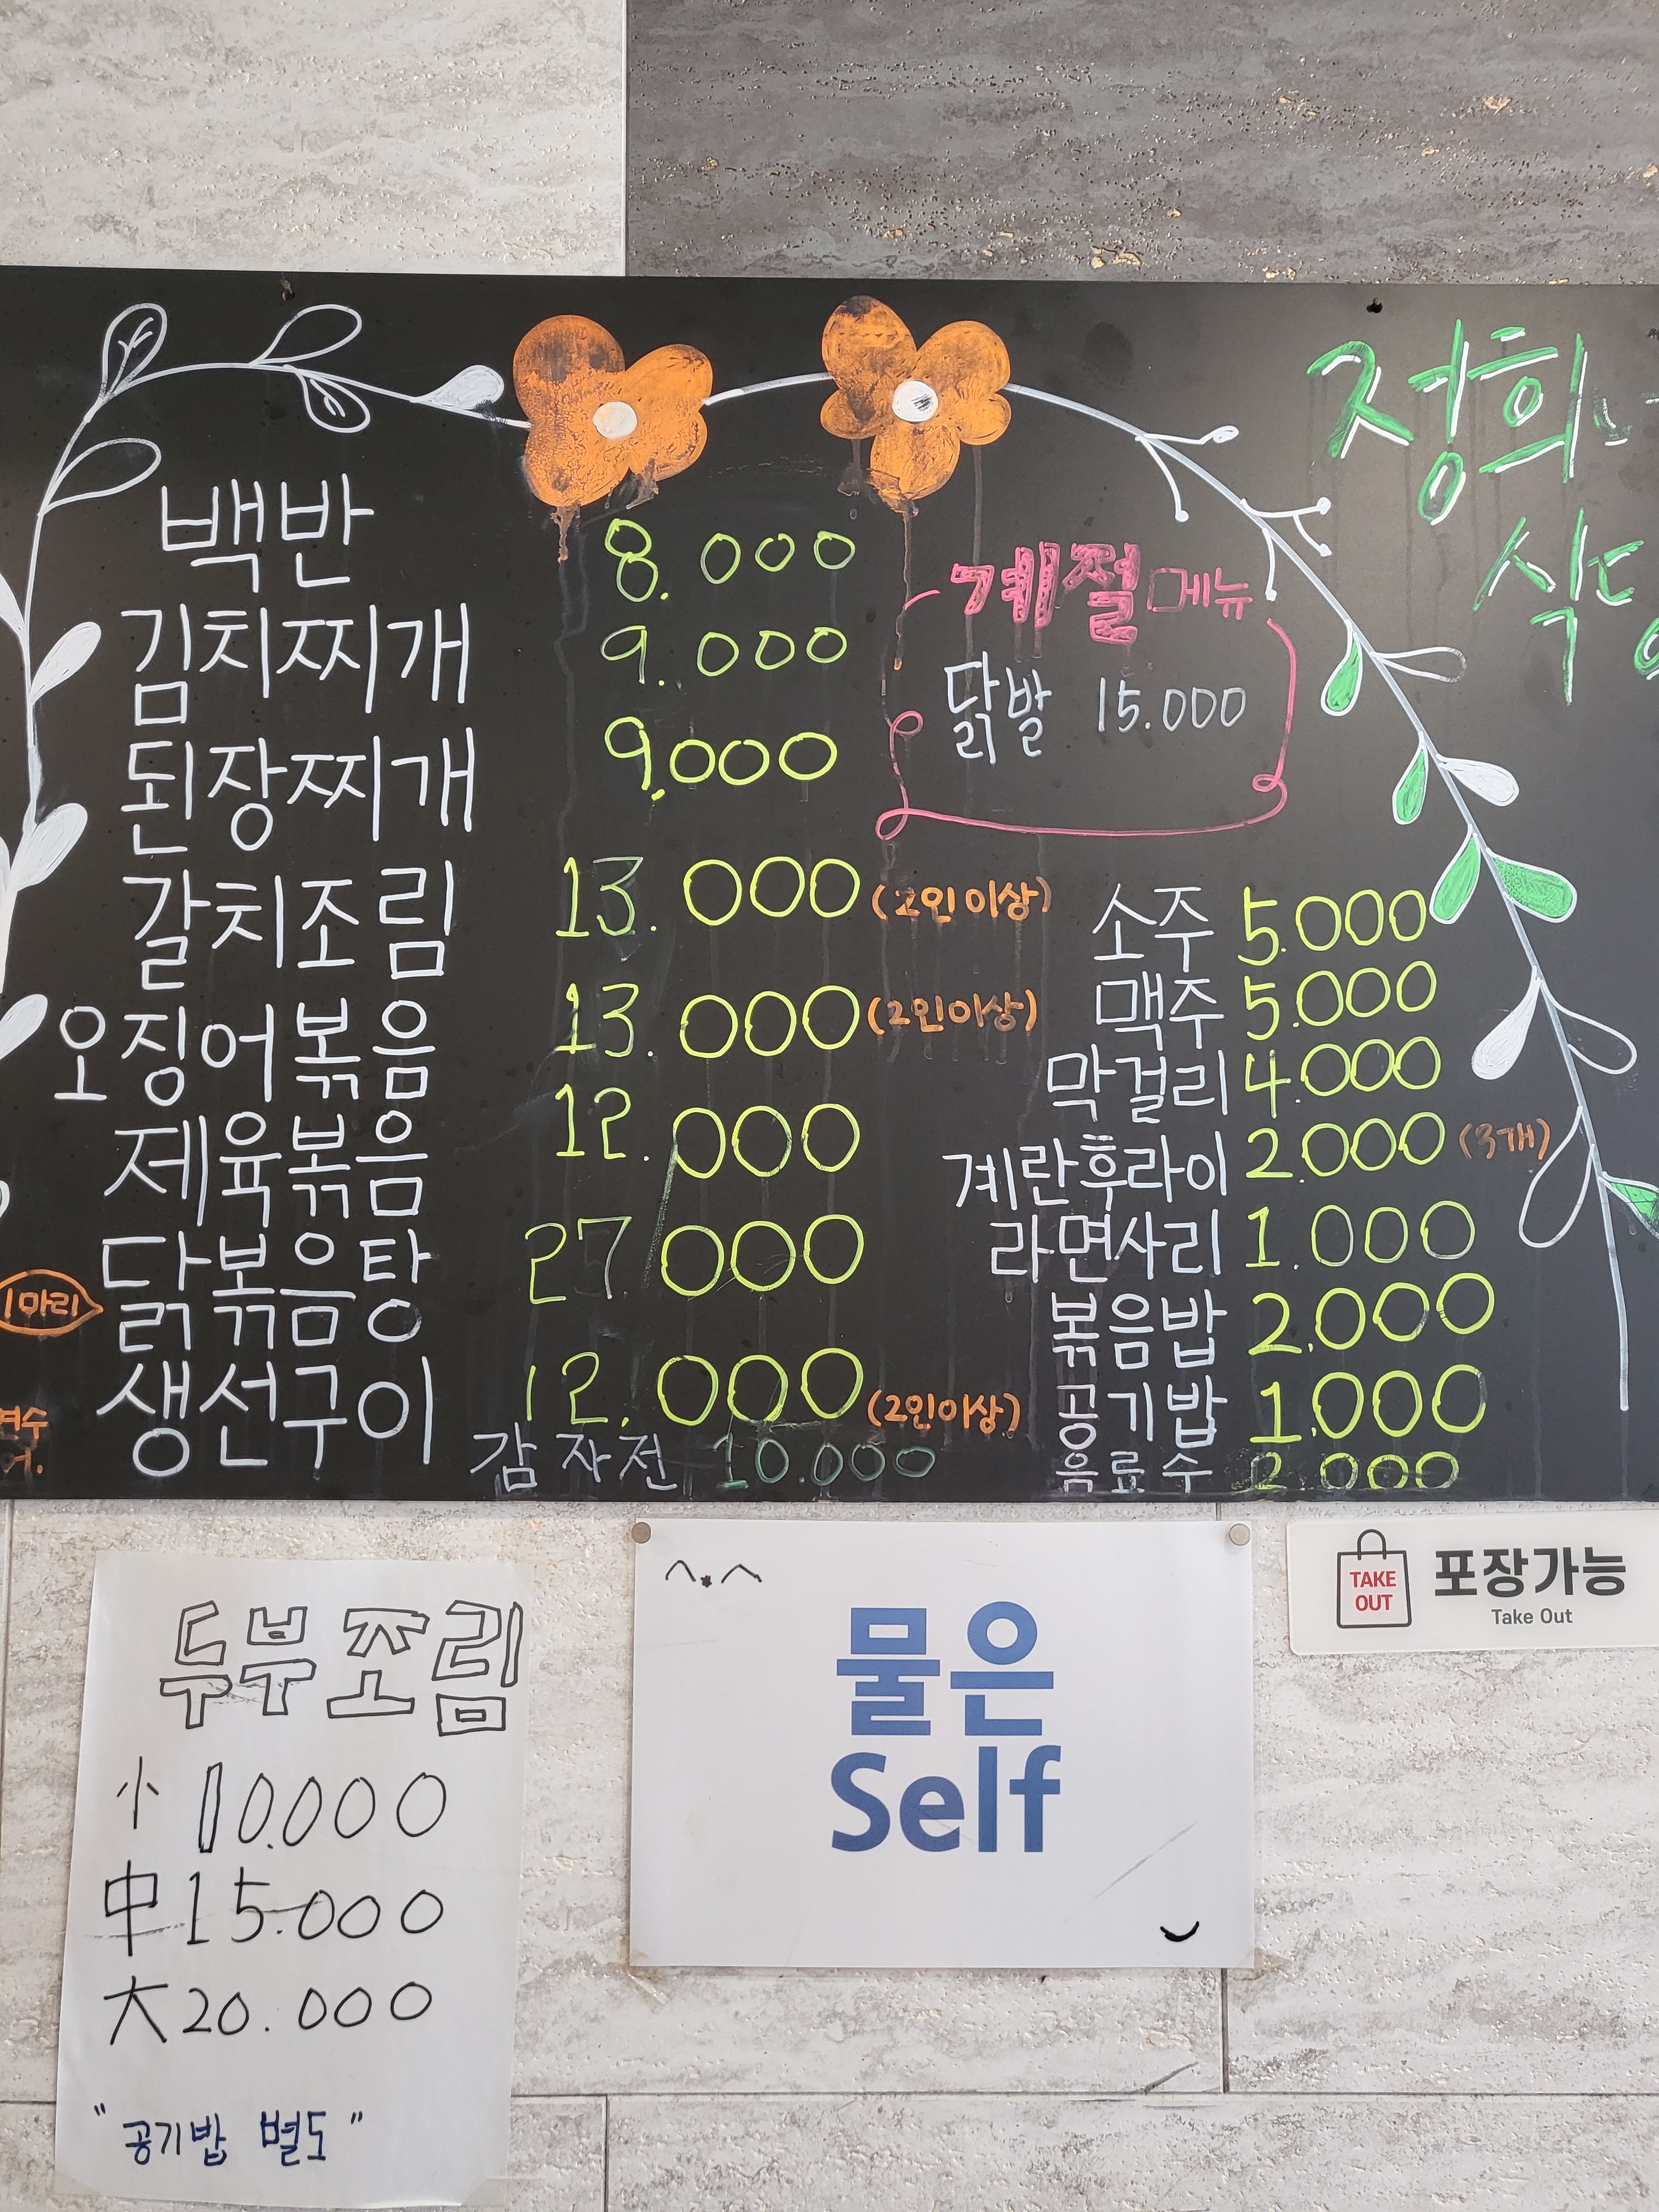 정희네
식당
백반 8.000
김치찌개 9.000
된장찌개 9.000
갈치조림 13.000 (2인이상)
오징어볶음 13.000 (2인이상)
제육볶음 12.000
1마리 닭볶음탕 27.000
생선구이 12.000 (2인이상)
감자전 10.000
계절메뉴
닭발 15.000
소주 5.000
맥주 5.000
막걸리 4.000
계란후라이 2.000 (3개)
라면사리 1.000
볶음밥 2.000
공기밥 1.000
음료수 2.000
두부조림
小 10.000
中 15.000
大 20.000
"공기밥 별도"
^.^
물은
Self
TAKE
OUT
포장가능
Take Out